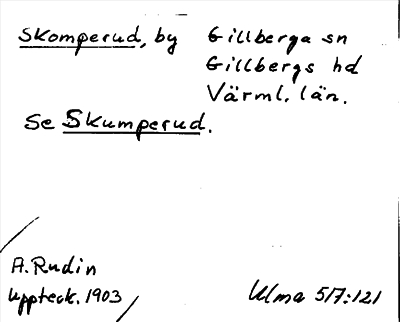 Skomperud, by Gillberga sn
Gillbergs hd
Värml. län.
Se Skumperud.
A. Rudin
Uppteck. 1903
Ulma 517:121